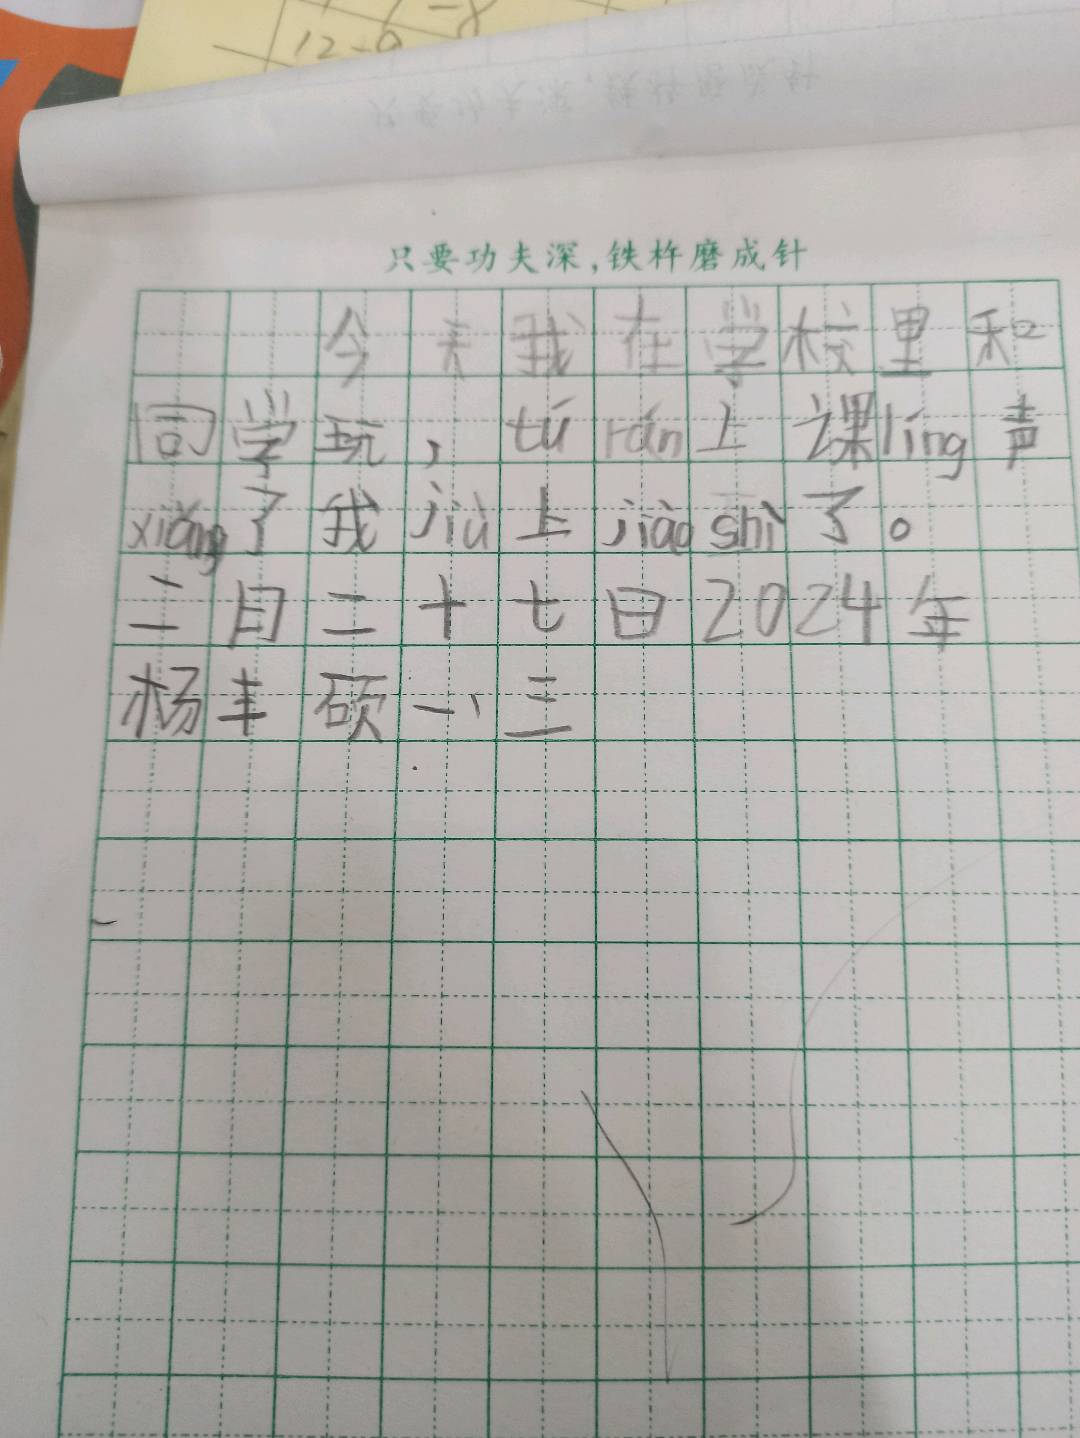 12-9 -8
只要功夫深,铁杵磨成针
今天我在学校里和
同学玩,tú rán上课líng声
xiǎng了我jiù上jiào shì了。
二月二十七日2024年
杨丰硕一、三